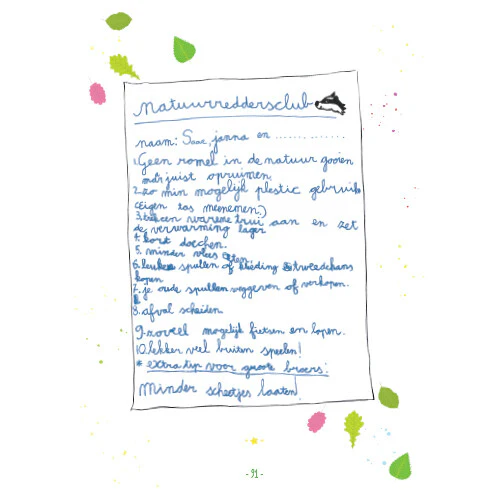 natuurreddersclub
naam: Saar, janna en ..............
1. Geen romel in de natuur gooien
maar juist opruimen
2. zo min mogelijk plestic gebruik
(Eigen tas meenemen.)
3. trek een wareme trui aan en zet
de verwarming lager
4. kort doechen.
5. minder vlees eten
6. leuke spullen of kleiding 2tweedehans
kopen
7. je oude spullen weggeven of verkopen.
8. afval scheiden
9. zoveel mogelijk fietsen en lopen.
10. lekker veel buiten speelen!
* extra tip voor groote broers:
Minder scheetjes laaten!
- 91 -